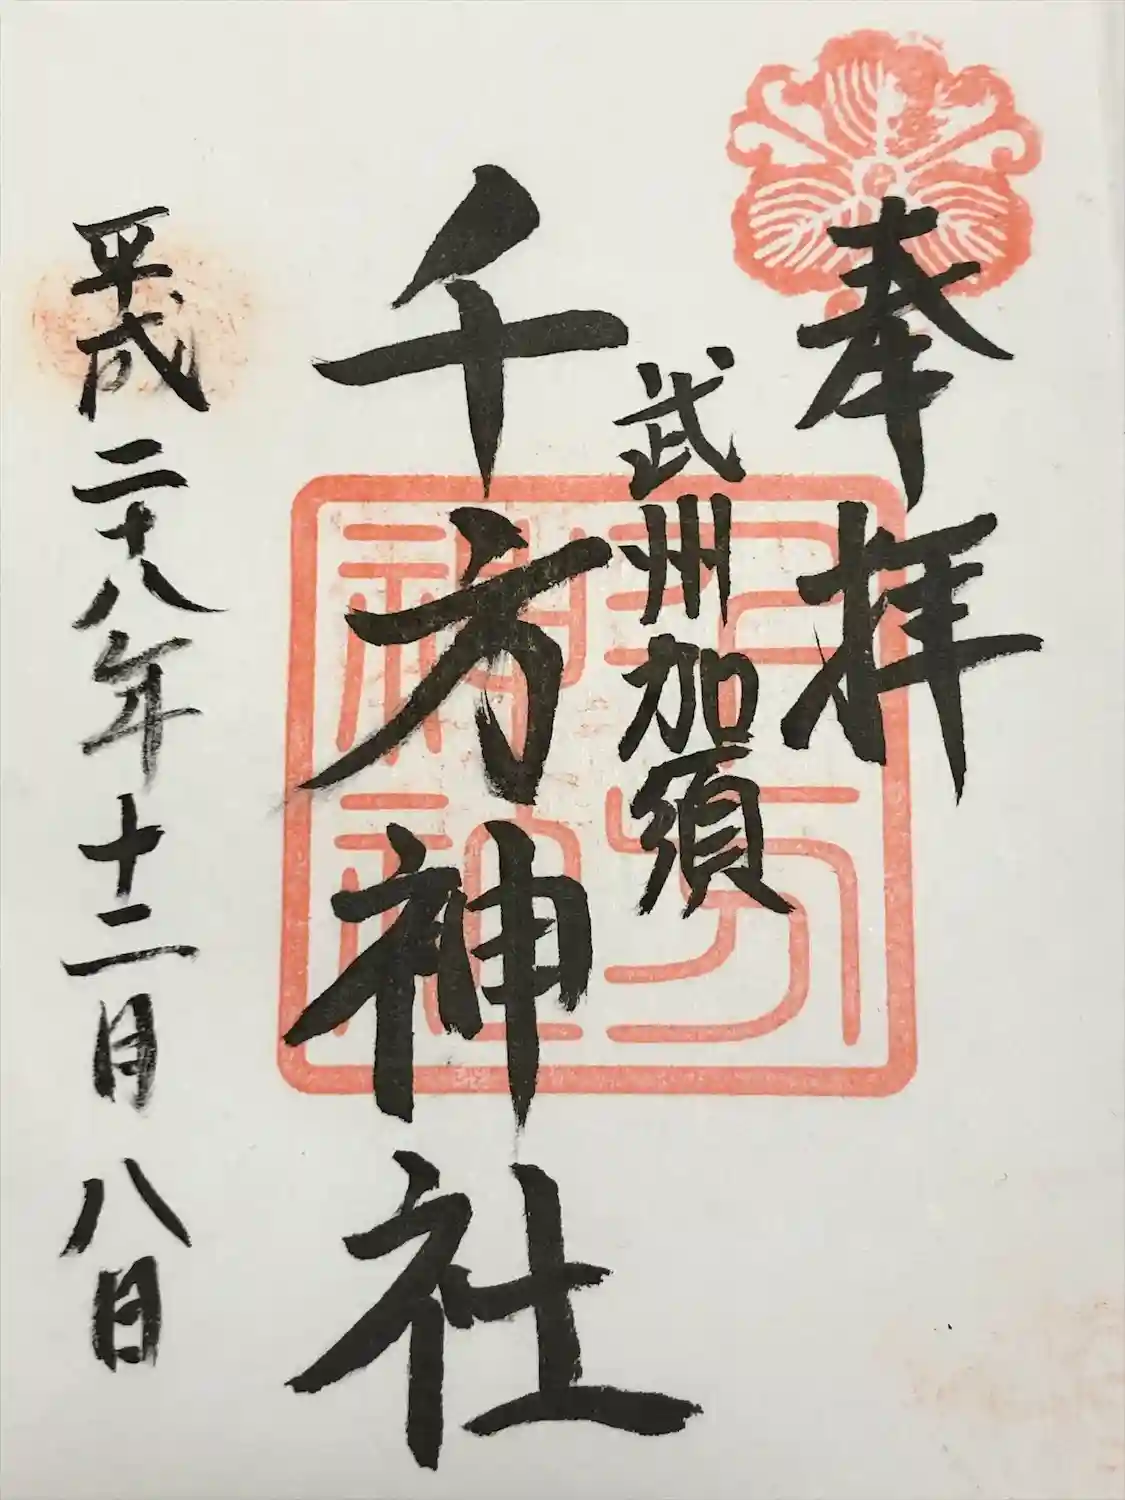 奉拝
武州加須
千方神社
平成二十八年十二月八日
千方
神社